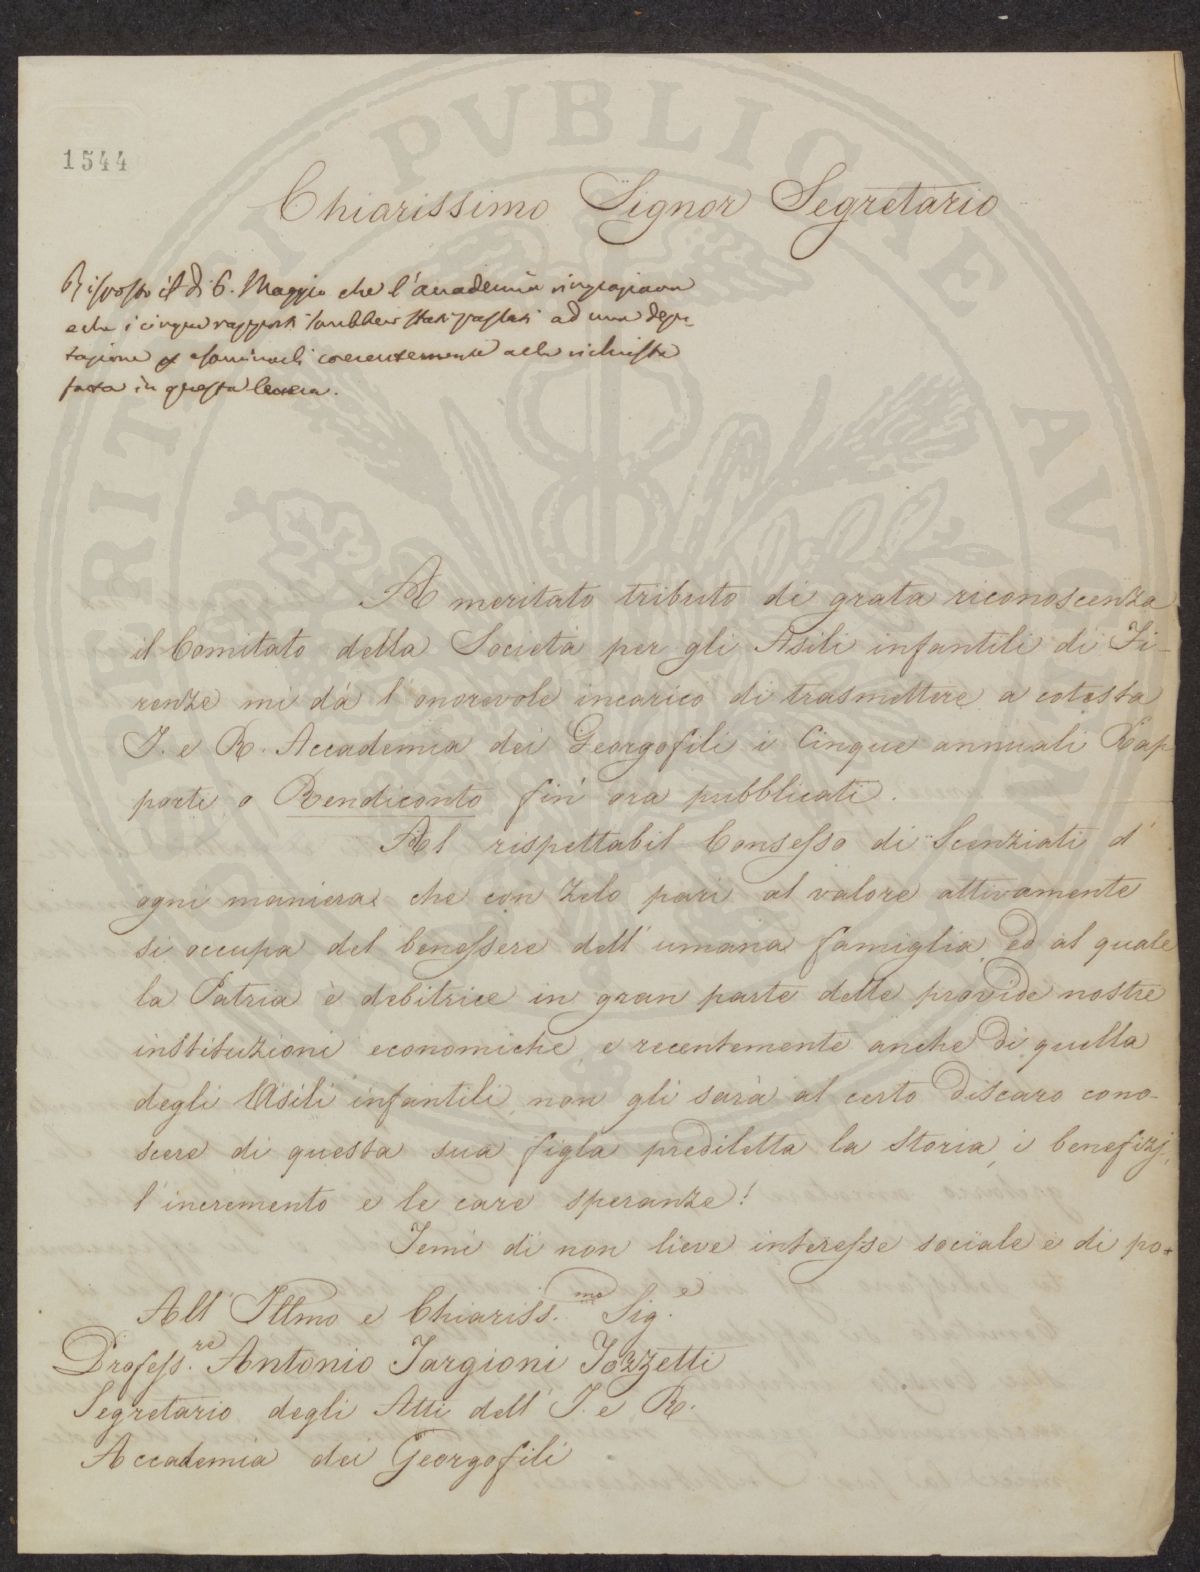 1544
Chiarissimo Signor Segretario
Risposto il dì 6. Maggio che l'accademia ringraziava
e che i cinque rapporti sarebber stati passati ad una depu-
tazione
fatta in questa lettera.
A meritato tributo di grata riconoscenza
il Comitato della Società per gli Asili infantili di Fi-
renze mi dà l'onorevole incarico di trasmettere a cotesta
I. e R. Accademia dei Georgofili i Cinque annuali Rap
porti o Rendiconto fin'ora pubblicati.
Al rispettabil Consesso di Scenziati d'
ogni maniera che con zelo pari al valore attivamente
si occupa del benessere dell'umana famiglia, ed al quale
la Patria è debitrice in gran parte delle provide nostre
instituzioni economiche, e recentemente anche di quella
degli Asili infantili, non gli sarà al certo discaro cono-
scere di questa sua figla prediletta la storia, i benefizj,
l'incremento e le care speranze!
Temi di non lieve interesse sociale e di po-
All' Illmo e Chiariss.mo Sig.e
Profess.re Antonio Targioni Tozzetti
Segretario degli Atti dell' I. e R.
Accademia dei Georgofili
PUBLICAE